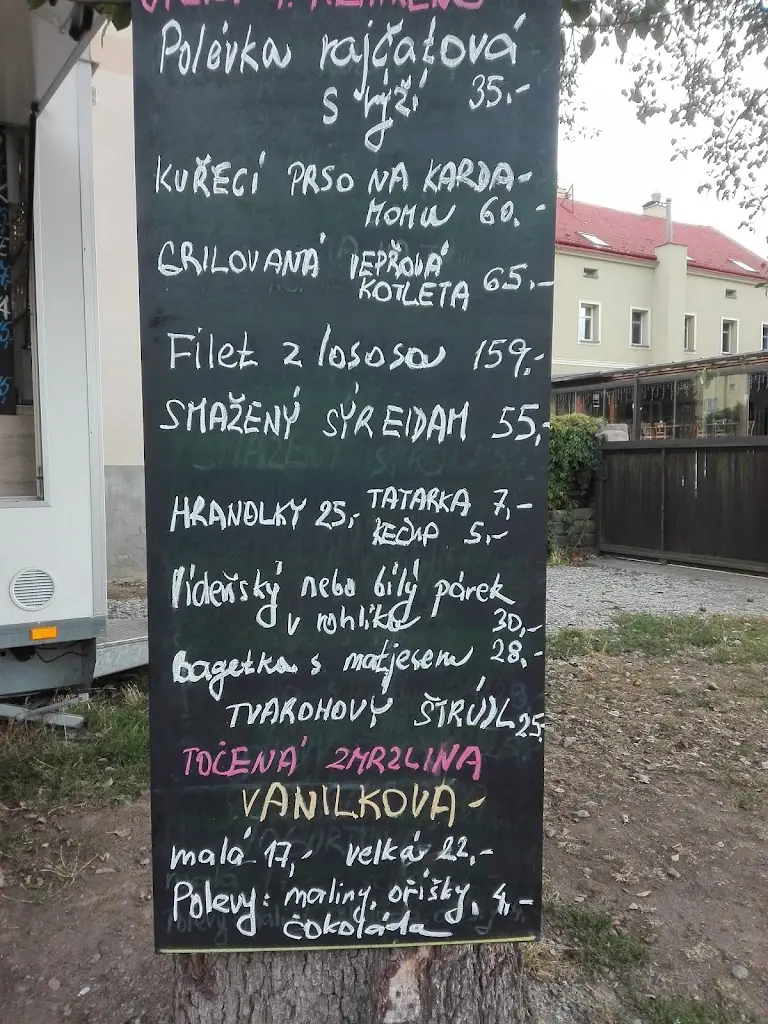 Polévka rajčatová
s rýží 35,-
KUŘECÍ PRSO NA KARDA-
MOMU 60,-
GRILOVANÁ VEPŘOVÁ
KOTLETA 65,-
Filet z lososa 159,-
SMAŽENÝ SÝR EIDAM 55,-
HRANOLKY 25,- TATARKA 7,-
KEČUP 5,-
Vídeňský nebo bílý párek
v rohlíku 30,-
Bagetka s matjesem 28,-
TVAROHOVÝ ŠTRÚDL 25,-
TOČENÁ ZMRZLINA
VANILKOVÁ -
malá 17,- velká 22,-
Polevy: maliny, oříšky, 4,-
čokoláda